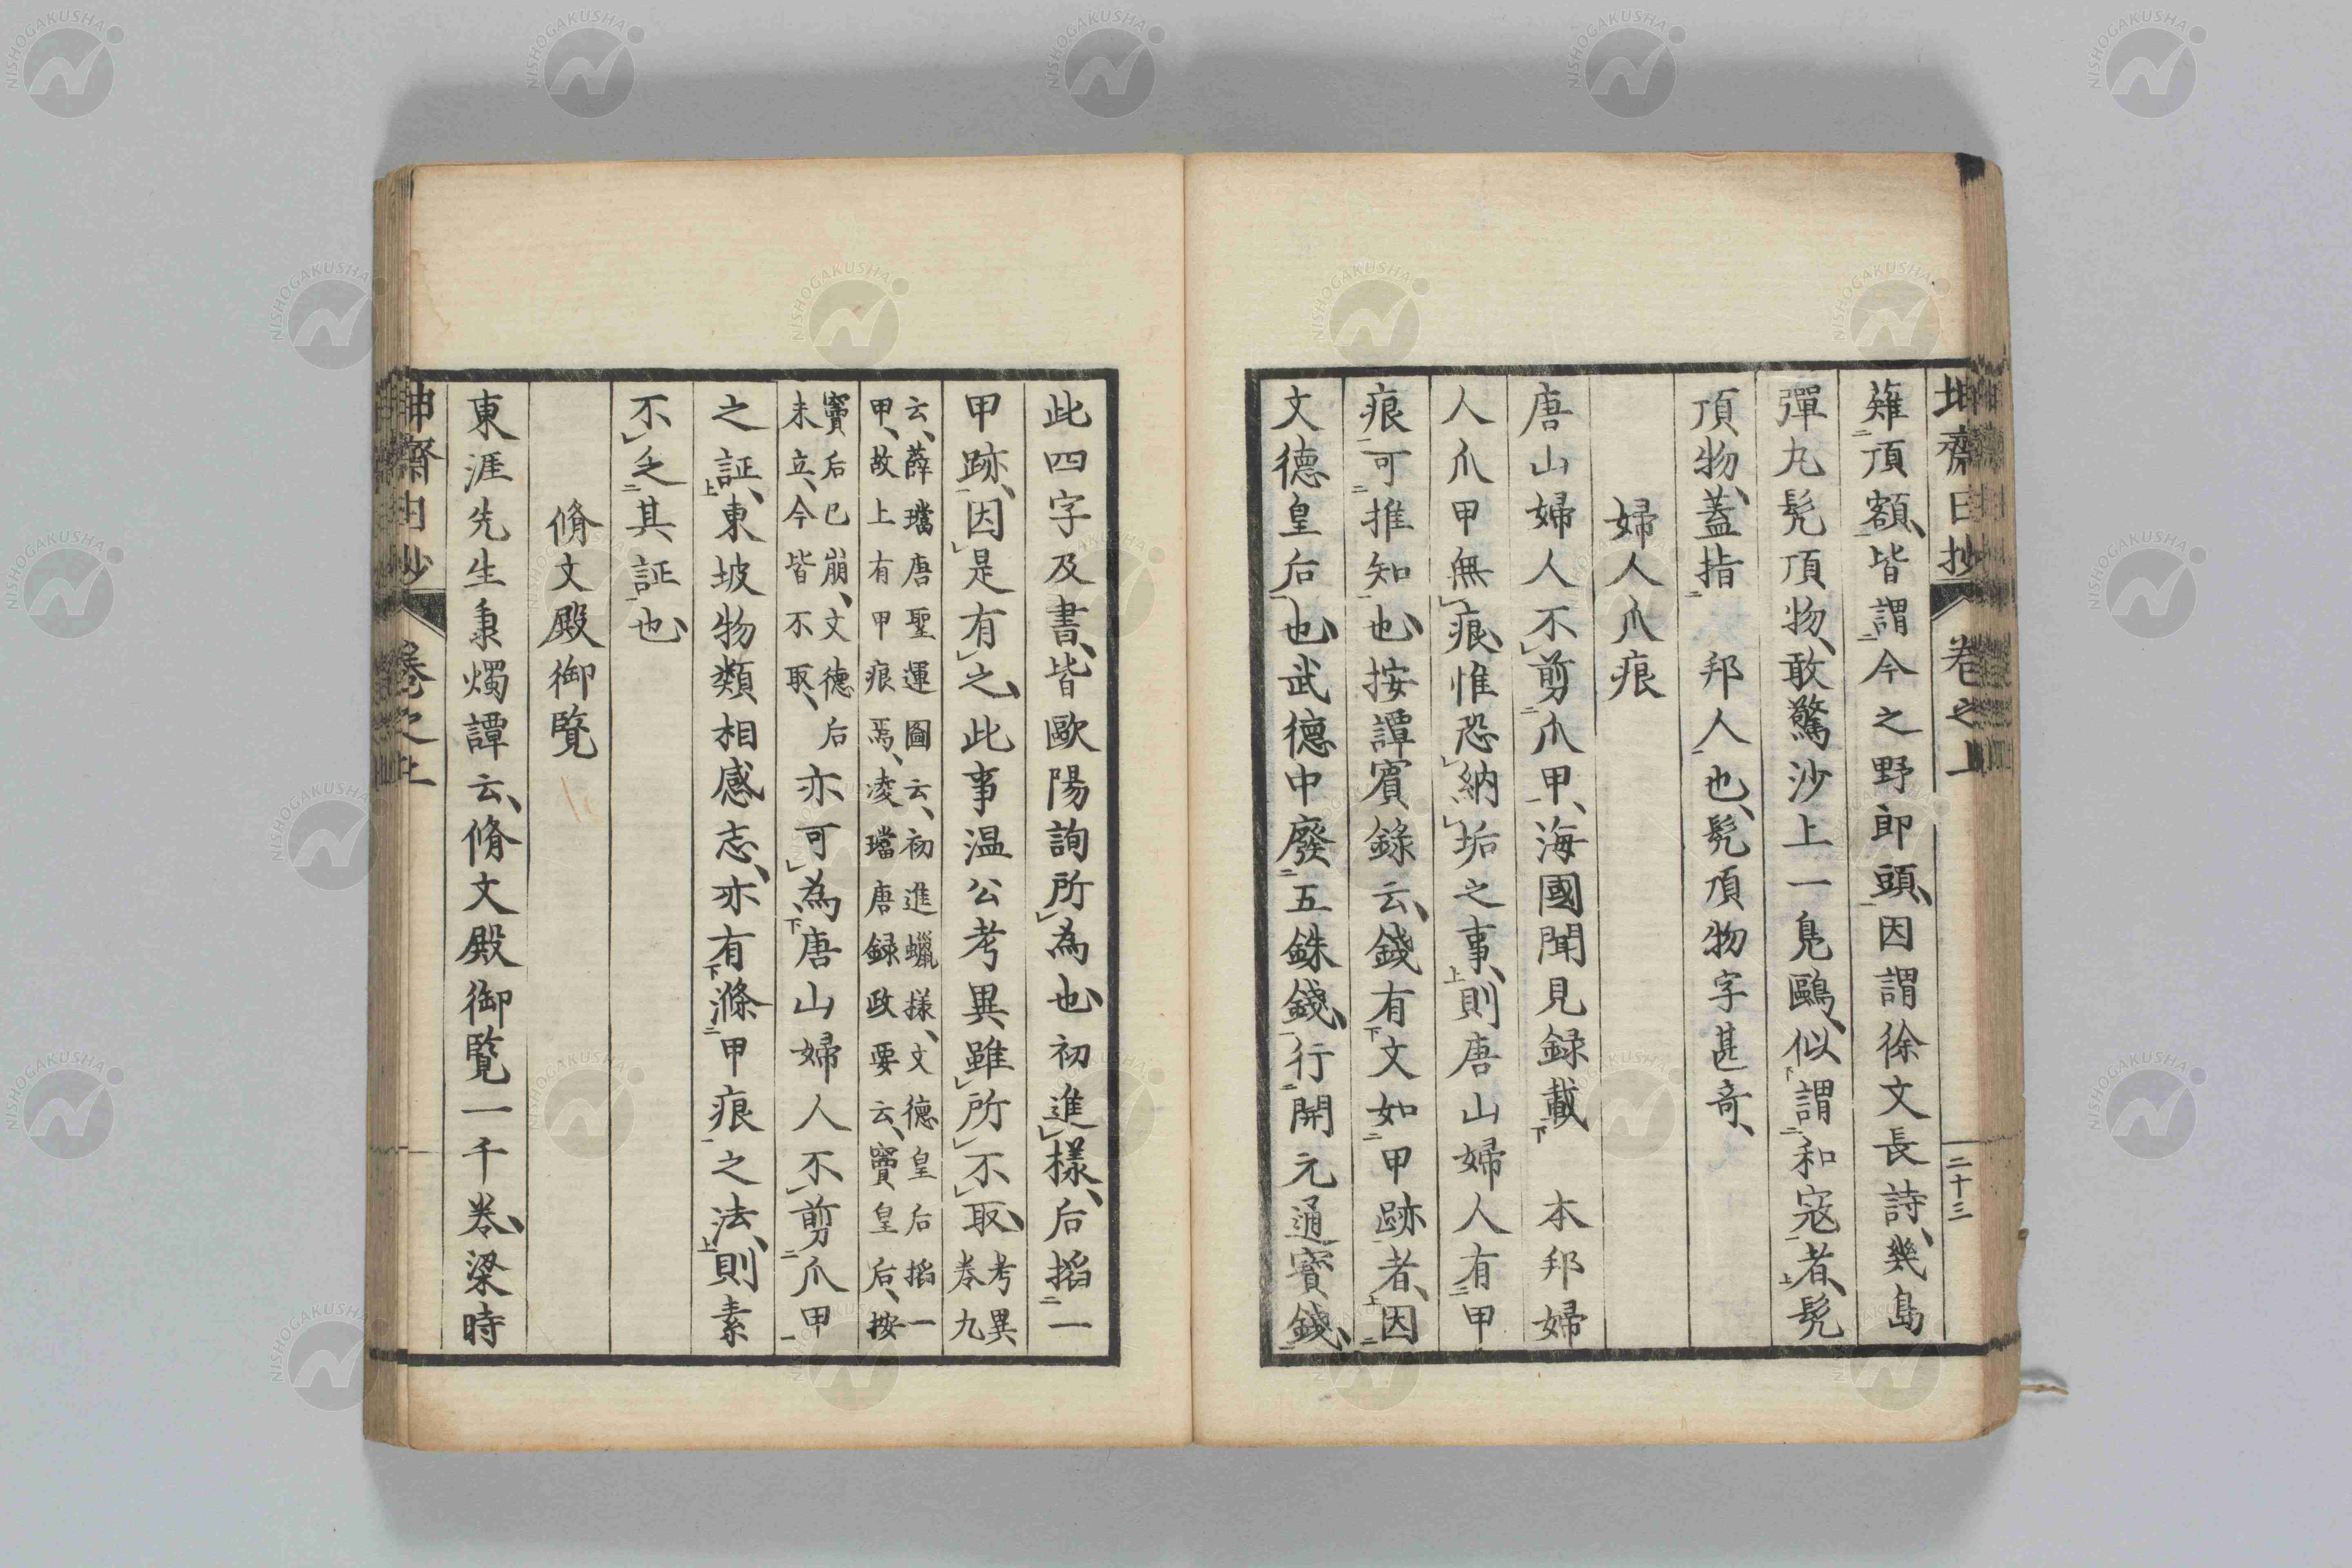 坤齋日抄 卷之上 二十三
薙頂額、皆謂今之野郎頭、因謂徐文長詩、幾島
彈丸髠頂物、敢驚沙上一鳧鷗、似謂和寇者、髠
頂物、蓋指 邦人也、髠頂物字甚奇、
婦人爪痕
唐山婦人不剪爪甲、海國聞見録載 本邦婦
人爪甲無痕、惟恐納垢之事、則唐山婦人有甲
痕可推知也、按譚賓錄云、錢有文如甲跡者、因
文德皇后也、武德中廢五銖錢、行開元通寶錢、
此四字及書、皆歐陽詢所為也、初進樣、后搯一
甲跡、因是有之、此事温公考異雖所不取、考異卷九
云、薛璫唐聖運圖云、初進蠟樣、文德皇后搯一
甲、故上有甲痕焉、凌璠唐録政要云、竇皇后、按
竇后已崩、文德后
未立、今皆不取、
亦可為唐山婦人不剪爪甲
之証、東坡物類相感志、亦有滌甲痕之法、則素
不乏其証也、
脩文殿御覽
東涯先生秉燭譚云、脩文殿御覽一千卷、梁時
坤齋日抄 卷之上
NISHOGAKUSHA